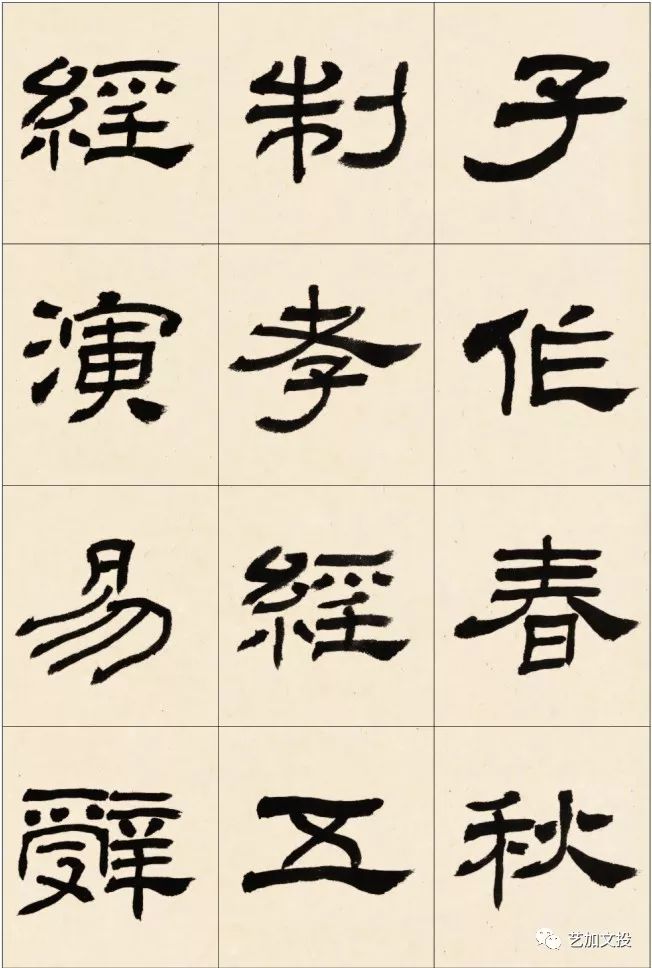 子作春秋
制孝經五
經演易辭
艺加文投